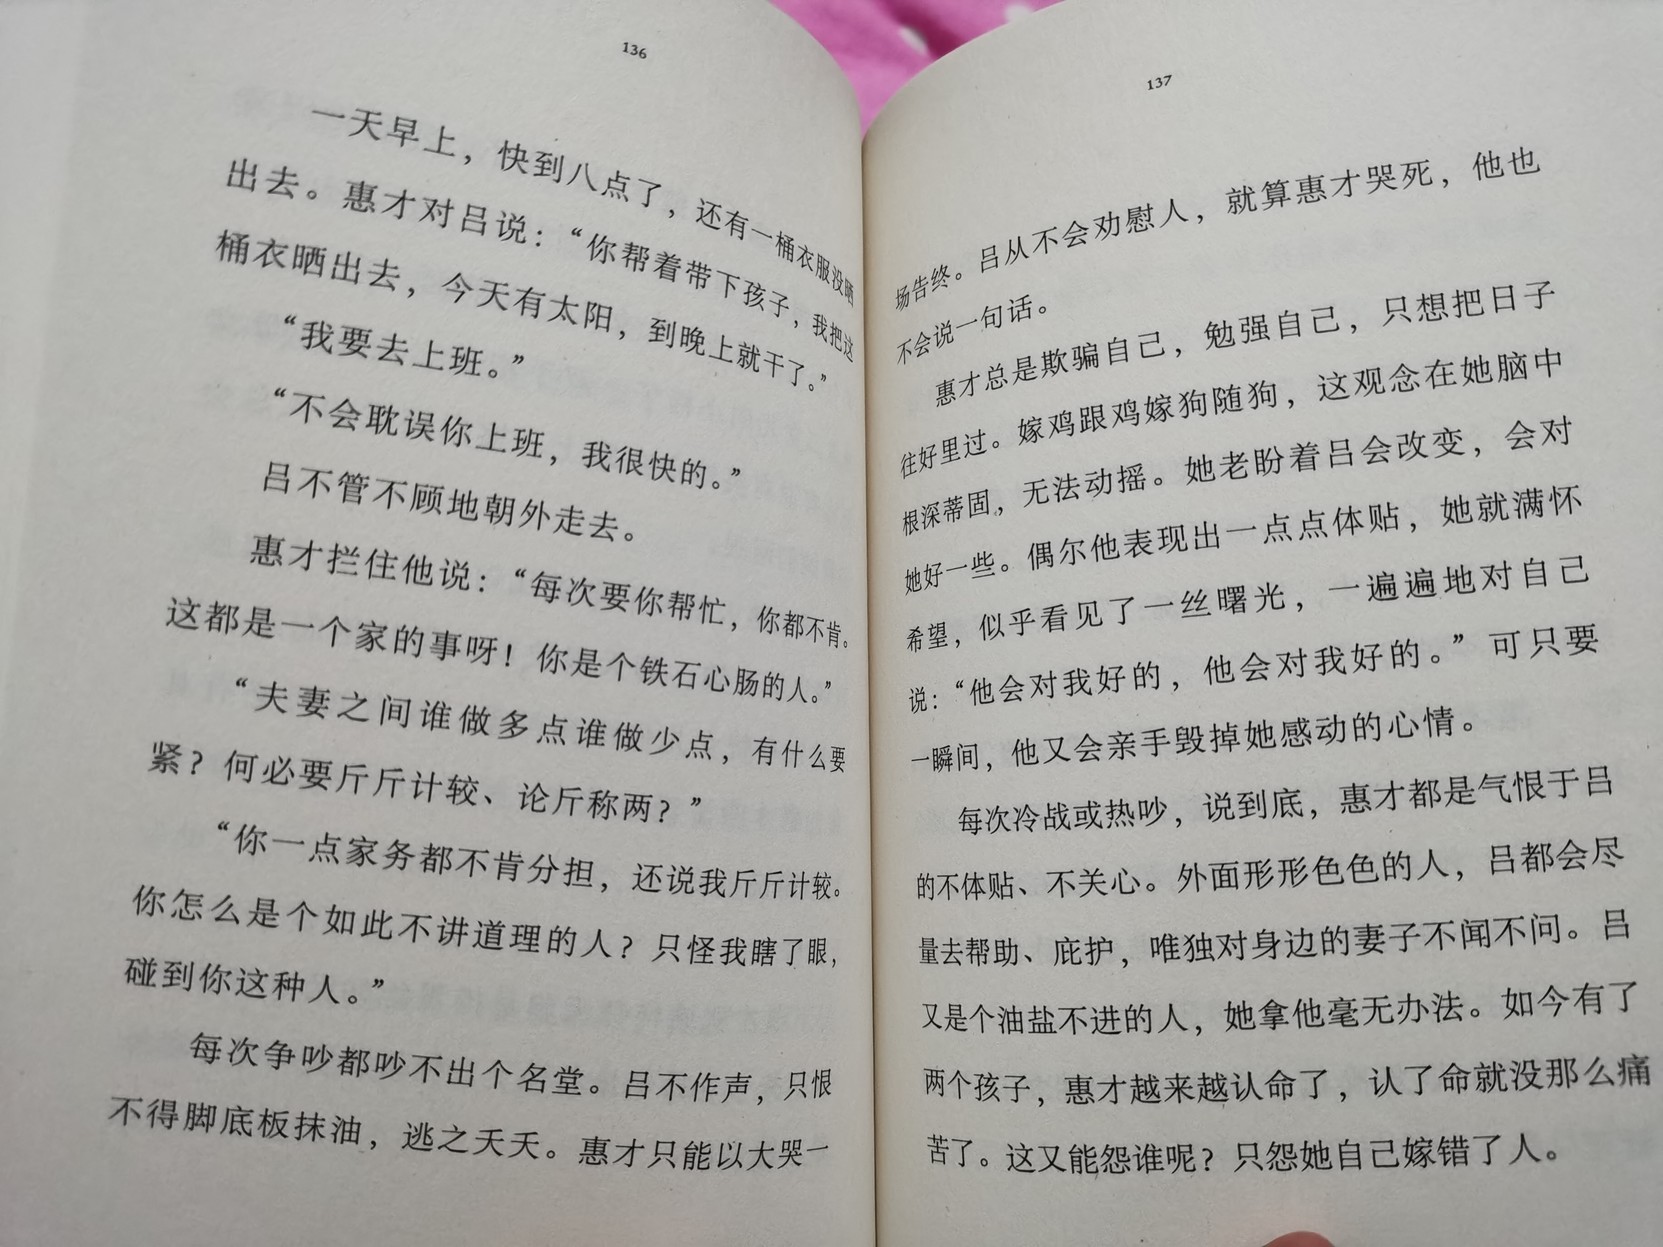 136
一天早上，快到八点了，还有一桶衣服没晒
出去。惠才对吕说：“你帮着带下孩子，我把这
桶衣晒出去，今天有太阳，到晚上就干了。”
“我要去上班。”
“不会耽误你上班，我很快的。”
吕不管不顾地朝外走去。
惠才拦住他说：“每次要你帮忙，你都不肯。
这都是一个家的事呀！你是个铁石心肠的人。”
“夫妻之间谁做多点谁做少点，有什么要
紧？何必要斤斤计较、论斤称两？”
“你一点家务都不肯分担，还说我斤斤计较。
你怎么是个如此不讲道理的人？只怪我瞎了眼，
碰到你这种人。”
每次争吵都吵不出个名堂。吕不作声，只恨
不得脚底板抹油，逃之夭夭。惠才只能以大哭一
137
场告终。吕从不会劝慰人，就算惠才哭死，他也
不会说一句话。
惠才总是欺骗自己，勉强自己，只想把日子
往好里过。嫁鸡跟鸡嫁狗随狗，这观念在她脑中
根深蒂固，无法动摇。她老盼着吕会改变，会对
她好一些。偶尔他表现出一点点体贴，她就满怀
希望，似乎看见了一丝曙光，一遍遍地对自己
说：“他会对我好的，他会对我好的。”可只要
一瞬间，他又会亲手毁掉她感动的心情。
每次冷战或热吵，说到底，惠才都是气恨于吕
的不体贴、不关心。外面形形色色的人，吕都会尽
量去帮助、庇护，唯独对身边的妻子不闻不问。吕
又是个油盐不进的人，她拿他毫无办法。如今有了
两个孩子，惠才越来越认命了，认了命就没那么痛
苦了。这又能怨谁呢？只怨她自己嫁错了人。